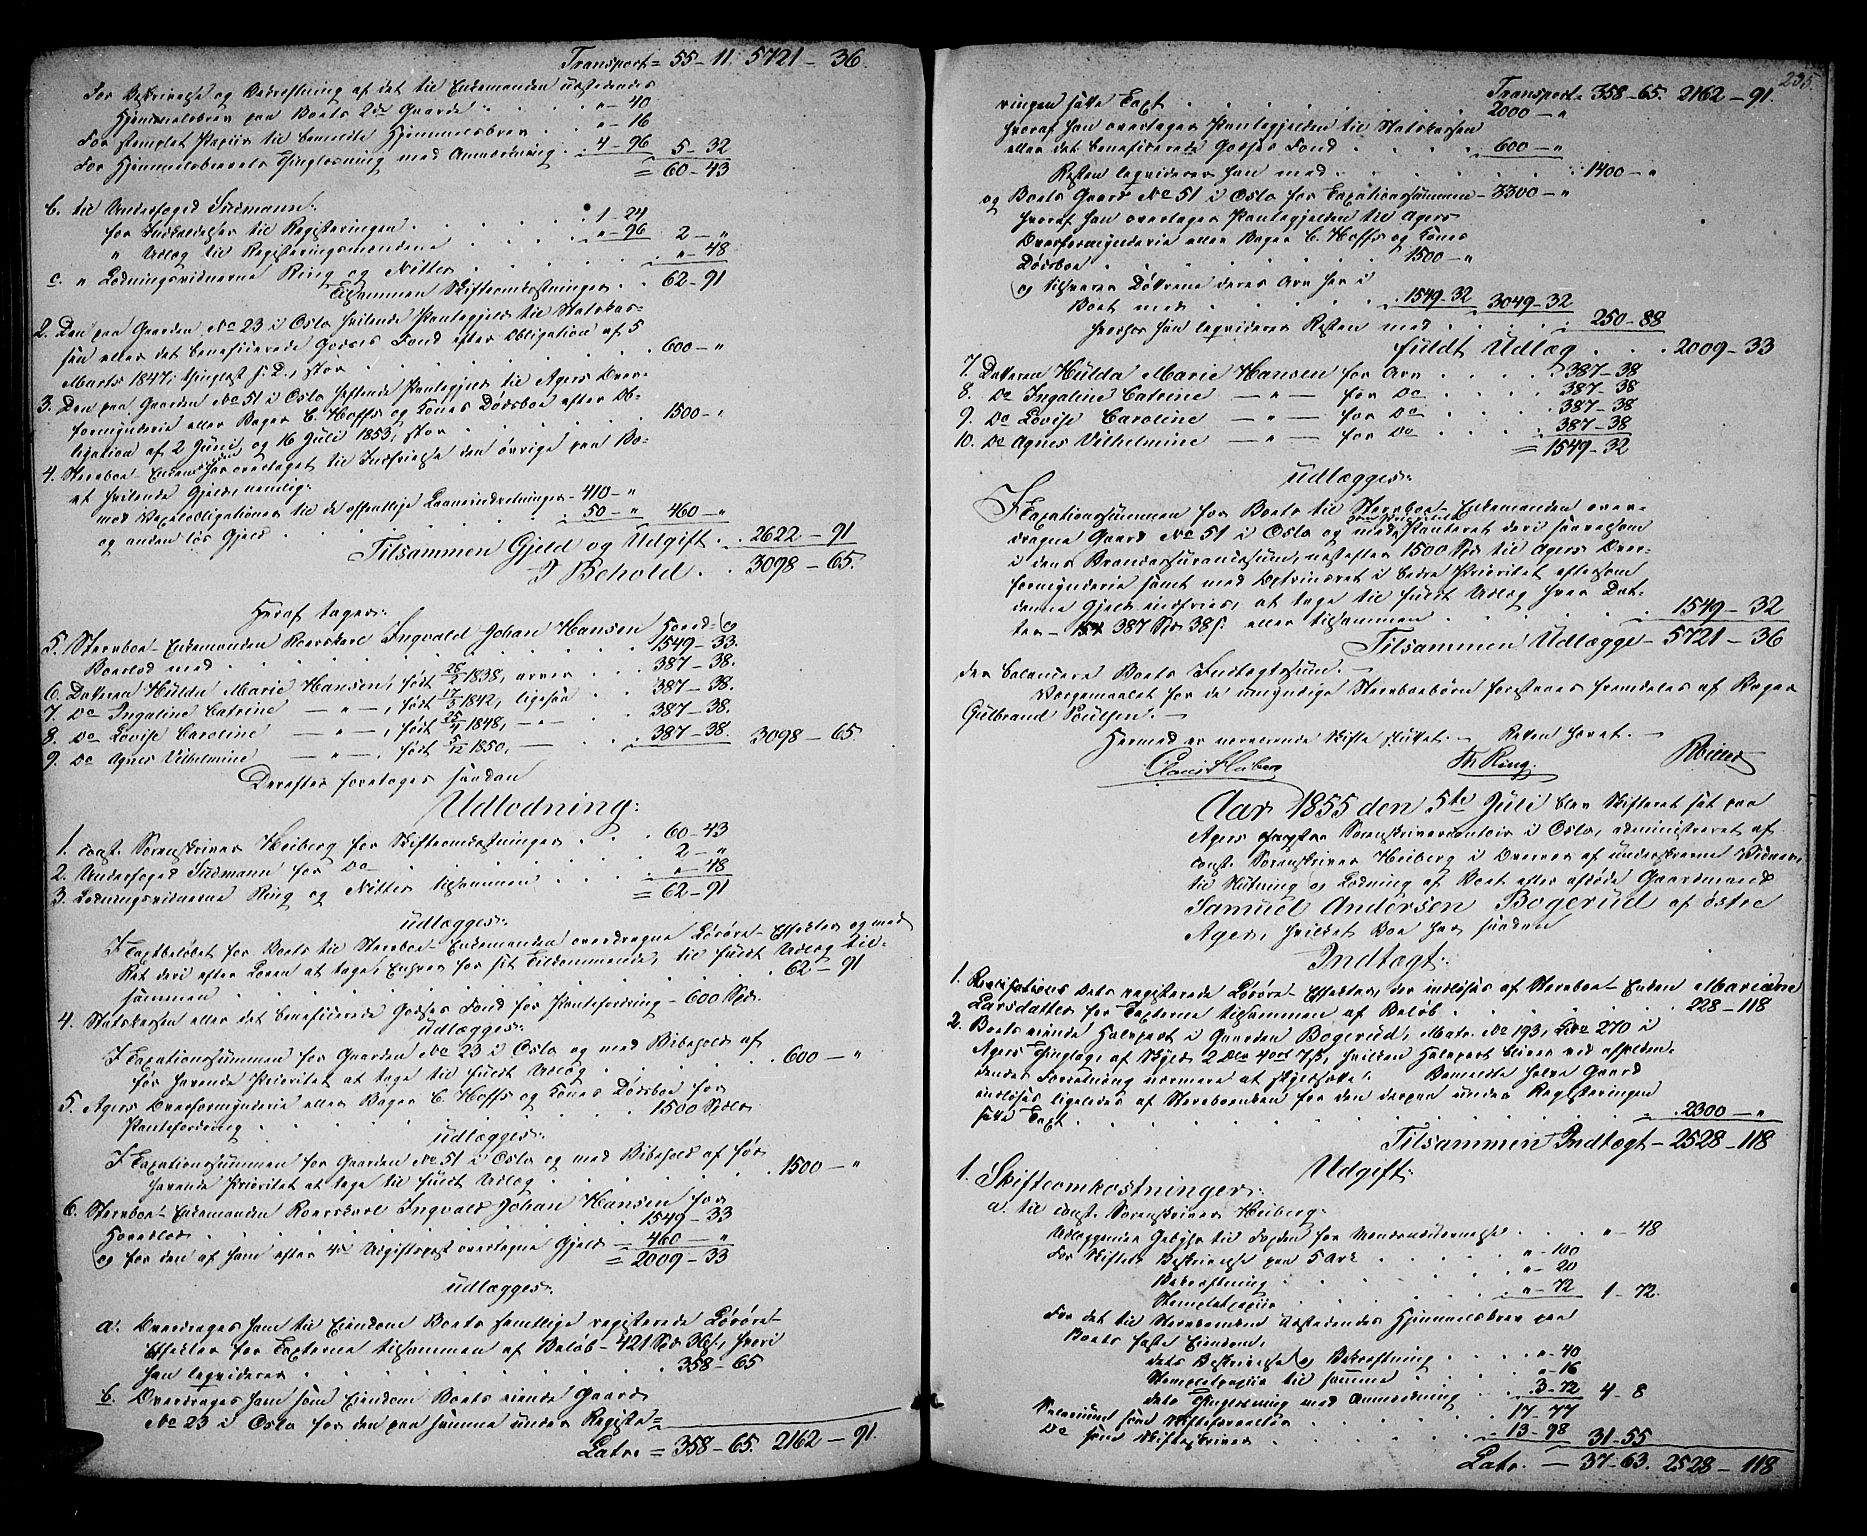 Transport = 55-11. 5721 - 36.
For Beskrivelse og Bekræftning af det til Enkemanden udstedende
Hjemmelsbrev paa Boets 2de Gaarde . . . „ - 40
For stemplet Papiir til bemeldte Hjemmelsbrev . . „ - 16
For Hjemmelsbrevets Thinglæsning med Anmærkning . 4 - 96 5 - 32
= 60 - 43
b. til Underfoged Siemann:
for Indkaldelser til Registeringen . . . . 1 - 24
„ Udlæg til Registeringsmændene . . . „ - 96 2 - „
c. „ Lodningsvidnerne Ring og Nitter . . . . „ - 48
Tilsammen Skifteomkostninger . . 62 - 91
2. Den paa Gaarden No 23 i Oslo hvilende Pantegjeld til Statskas-
sen eller det beneficerede Godses Fond efter Obligation af 5
Marts 1847, thinglæst s. D., stor . . . . 600 - „
3. Den paa Gaarden No 51 i Oslo heftende Pantegjeld til Agers Over-
formynderie eller Bager C. Hoffs og Kones Dødsboe efter Ob-
ligation af 2 Juni og 16 Juli 1853, stor . . . 1500 - „
4. Stervboe-Enkemanden har overtaget til Indfrielse den øvrige paa Bo-
et hvilende Gjeld, nemlig:
med Vexelobligationer til de offentlige Laaneindretninger - 410 - „
og anden løs Gjeld . . . . 50 - „ 460 - „
Tilsammen Gjeld og Udgift . . 2622 - 91
I Behold . . 3098 - 65.
Heraf tager:
5. Stervboe-Enkemanden Roerskarl Ingvald Johan Hansen Hoved- og
Boeslod med . . . . 1549 - 33.
6. Datteren Hulda Marie Hansen, født 28/2 1838, arver . . 387 - 38.
7. Do Ingaline Catrine — „ — , født 17/3 1842, ligesaa . . 387 - 38.
8. Do Lovise Caroline — „ — , født 25/4 1848, — „ — . . 387 - 38.
9. Do Agnes Vilhelmine — „ — , født 5/12 1850, — . . 387 - 38. 3098 - 65.
Derefter foretages saadan
Udlodning:
1. const. Sorenskriver Heiberg for Skifteomkostninger . . 60 - 43
2. Underfoged Siemann for Do . . . 2 - „
3. Lodningsvidnerne Ring og Nitter tilsammen . . . „ - 48
= 62 - 91
udlægges:
I Taxtbeløbet for Boets til Stervboe-Enkemanden overdragne Løsøre-Effekter og med
Ret deri efter Loven at tage, Enhver for sit Tilkommende, til fuldt Udlæg til-
sammen . . . . 62 - 91
4. Statskassen eller det beneficerede Godses Fond for Pantefordring - 600 Spd.
udlægges:
I Taxationssummen for Gaarden No 23 i Oslo og med Bibehold af
før havende Prioritet at tage til fuldt Udlæg . . . 600 - „
5. Agers Overformynderie eller Bager C. Hoffs og Kones Dødsboe for
Pantefordring . . . . 1500 Spdlr.
udlægges:
I Taxationssummen for Gaarden No 51 i Oslo og med Bibehold af før
havende Prioritet at tage til fuldt Udlæg . . . 1500 - „
6. Stervboe-Enkemanden Roerskarl Ingvald Johan Hansen for
Hovedlod . . . . 1549 - 33
og for den af ham efter 4de Udgiftspost overtagne Gjeld - 460 - „
= 2009 - 33
udlægges:
a. Overdrages ham til Eiendom Boets samtlige registerede Løsøre-
Effekter for Taxterne tilsammen af Beløb - 421 Spd 36 s, hvori
han leqviderer . . . . 358 - 65
b. Overdrages ham som Eiendom Boets eiende Gaard
No 23 i Oslo for den paa samme under Registe-
Latr. = 358 - 65. 2162 - 91.
235.
Transport - 358 - 65. 2162 - 91.
ringen satte Taxt . . . . 2000 - „
hvoraf han overtager Pantegjelden til Statskassen
eller det beneficerede Godses Fond . . . 600 - „
Resten leqviderer han med . . . . 1400 - „
og Boets Gaard No 51 i Oslo for Taxationssummen - 3300 - „
hvoraf han overtager Pantegjelden til Agers
Overformynderie eller Bager C. Hoffs og Kones
Dødsboe . . . . 1500 - „
og tilsvarer Døttrene deres Arv her i
Boet med . . . . 1549 - 32 3049 - 32
hvorfor han leqviderer Resten med . . . 250 - 88
fuldt Udlæg . . . 2009 - 33
7. Datteren Hulda Marie Hansen for Arv . . . 387 - 38
8. Do Ingaline Catrine — „ — for Do . . . 387 - 38
9. Do Lovise Caroline — „ — for Do . . . 387 - 38
10. Do Agnes Vilhelmine — „ — for Do . . . 387 - 38
= 1549 - 32
udlægges:
I Taxationssummen for Boets til Stervboe-Enkemanden over-
dragne Gaard No 51 i Oslo og med Panteret deri saavelsom
i dens Brandassurancesum, næstefter 1500 Spd til Agers Over-
formynderie samt med Optrinsret i bedre Prioritet eftersom
denne Gjeld indfries, at tage til fuldt Udlæg hver Dat-
ter - 387 Spd 38 s. eller tilsammen . . . 1549 - 32
Tilsammen Udlægge - 5721 - 36
der balancere Boets Indtægtssum. —
Værgemaalet for de umyndige Stervboebørn forestaaes fremdeles af Bager
Gulbrand Poulsen. —
Hermed er nærværende Skifte sluttet. — Retten hævet. —
Claus Heiberg Th Ring. Nitter
Aar 1855 den 5te Juli blev Skifteret sat paa
Agers Sorenskrivercontoir i Oslo, administreret af
const. Sorenskriver Heiberg i Overvær af underskrevne Vidner
til Slutning og Lodning af Boet efter afdøde Gaardmand
Samuel Andersen Bogerud af østre
Ager, hvilket Boe har saadan
Indtægt:
1. Dets registerede Løsøre-Effekter, der indløses af Stervboe-Enken Mariane
Larsdatter for Taxterne tilsammen af Beløb . . . 228 - 118
2. Boets eiende Halvpart i Gaarden Bogerud, Matr. No 193, Løbe 270 i
Agers Thinglag af Skyld 2 Dlr 4 ort 7 s, hvilken Halvpart bliver ved afholden-
dende Forretning nærmere at skyldsætte. Bemeldte halve Gaard
indløses ligeledes af Stervboenken for den derpaa under Registeringen
satte Taxt . . . . 2300 - „
Tilsammen Indtægt - 2528 - 118
Udgift:
1. Skifteomkostninger:
a. til const. Sorenskriver Heiberg:
Udlæggende Gebyhr til Fogden for . . . „ - 48
For Skiftets Beskrivelse paa 5 Ark . . . „ - 100
Bekræftning . . . „ - 20
Stempletpapiir . . . „ - 72 1 - 72.
For det til Stervboenken udstedende Hjemmelsbrev paa
Boets faste Eiendom,
dets Beskrivelse og Bekræftning . . . „ - 40
Stempletpapiir til samme . . . „ - 16
dets Thinglæsning med Anmærkning . . 3 - 72 4 - 8
Salarium som Skifteforvalter . . . 17 - 77
Do som Skifteskriver . . . 13 - 98 31 - 55
Latr. — 37 - 63. 2528 - 118